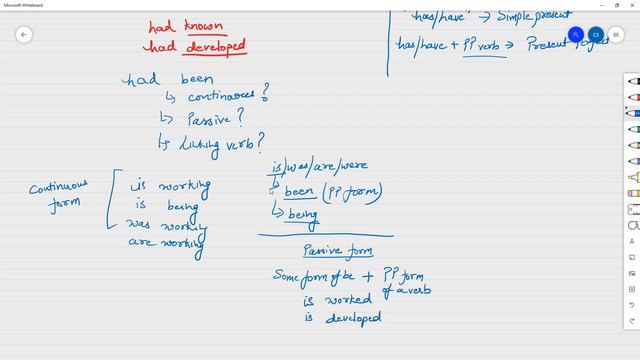 Microsoft Whiteboard
had known
had developed
"has/have" → Simple present
has/have + PP verb → Present Perfect
CS
had been
↳ continuous?
↳ Passive?
↳ Linking verb?
Continuous form
is working
is being
was working
are working
is/was/are/were
↳ been (PP form)
↳ being
Passive form
Some form of be + PP form of a verb
is worked
is developed